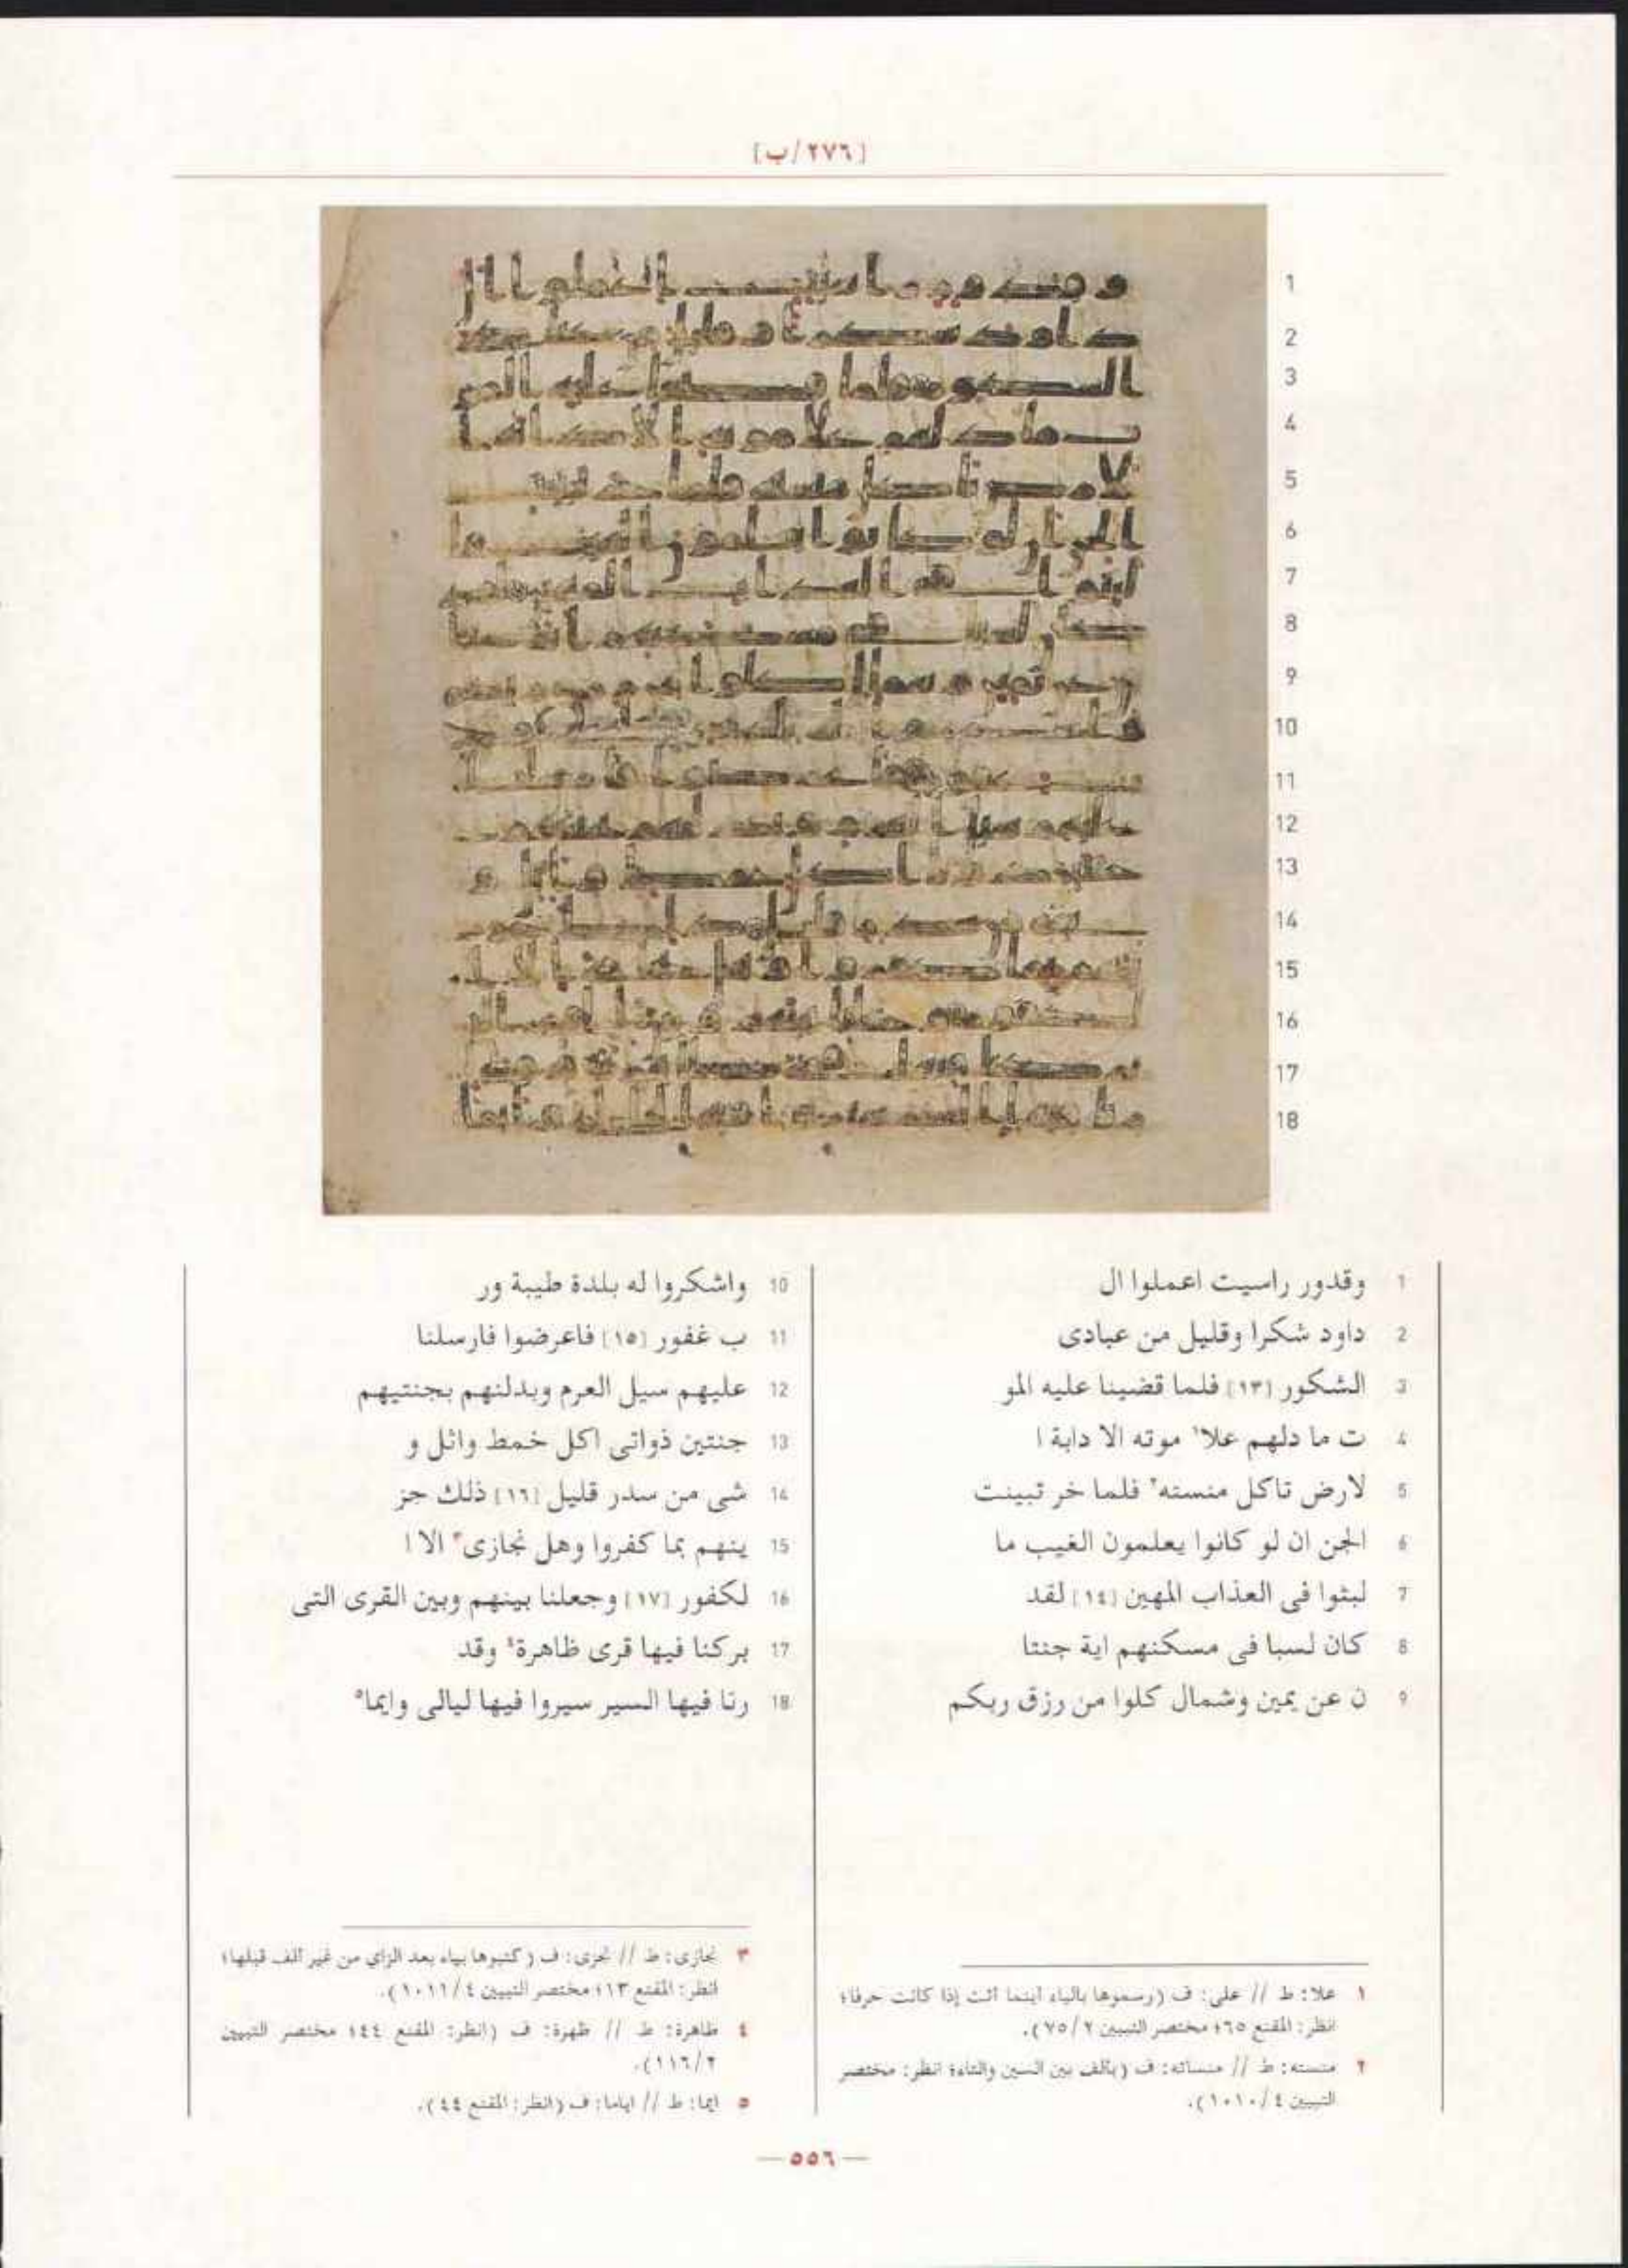 [٢٧٦/ب]
1 وقدور راسيت اعملوا ال
2 داود شكرا وقليل من عبادى
3 الشكور [١٣] فلما قضينا عليه المو
4 ت ما دلهم علا١ موته الا دابة ا
5 لارض تاكل منسته٢ فلما خر تبينت
6 الجن ان لو كانوا يعلمون الغيب ما
7 لبثوا فى العذاب المهين [١٤] لقد
8 كان لسبا فى مسكنهم اية جنتا
9 ن عن يمين وشمال كلوا من رزق ربكم
10 واشكروا له بلدة طيبة ور
11 ب غفور [١٥] فاعرضوا فارسلنا
12 عليهم سيل العرم وبدلنهم بجنتيهم
13 جنتين ذواتى اكل خمط واثل و
14 شى من سدر قليل [١٦] ذلك جز
15 ينهم بما كفروا وهل نجازى٣ الا ا
16 لكفور [١٧] وجعلنا بينهم وبين القرى التى
17 بركنا فيها قرى ظاهرة٤ وقد
18 رنا فيها السير سيروا فيها ليالى وايما٥
١ علا: ط // على: ف (رسموها بالياء أينما أتت إذا كانت حرفا؛
انظر: المقنع ٦٥؛ مختصر التبيين ٧٥/٢).
٢ منسته: ط // منساته: ف (بألف بين السين والتاء؛ انظر: مختصر
التبيين ١٠١٠/٤).
٣ نجازى: ط // نجزى: ف (كتبوها بياء بعد الزاي من غير ألف قبلها؛
انظر: المقنع ١٣؛ مختصر التبيين ١٠١١/٤).
٤ ظاهرة: ط // ظهرة: ف (انظر: المقنع ٤٤؛ مختصر التبيين
١١٦/٢).
٥ ايما: ط // اياما: ف (انظر: المقنع ٤٤).
— ٥٥٦ —